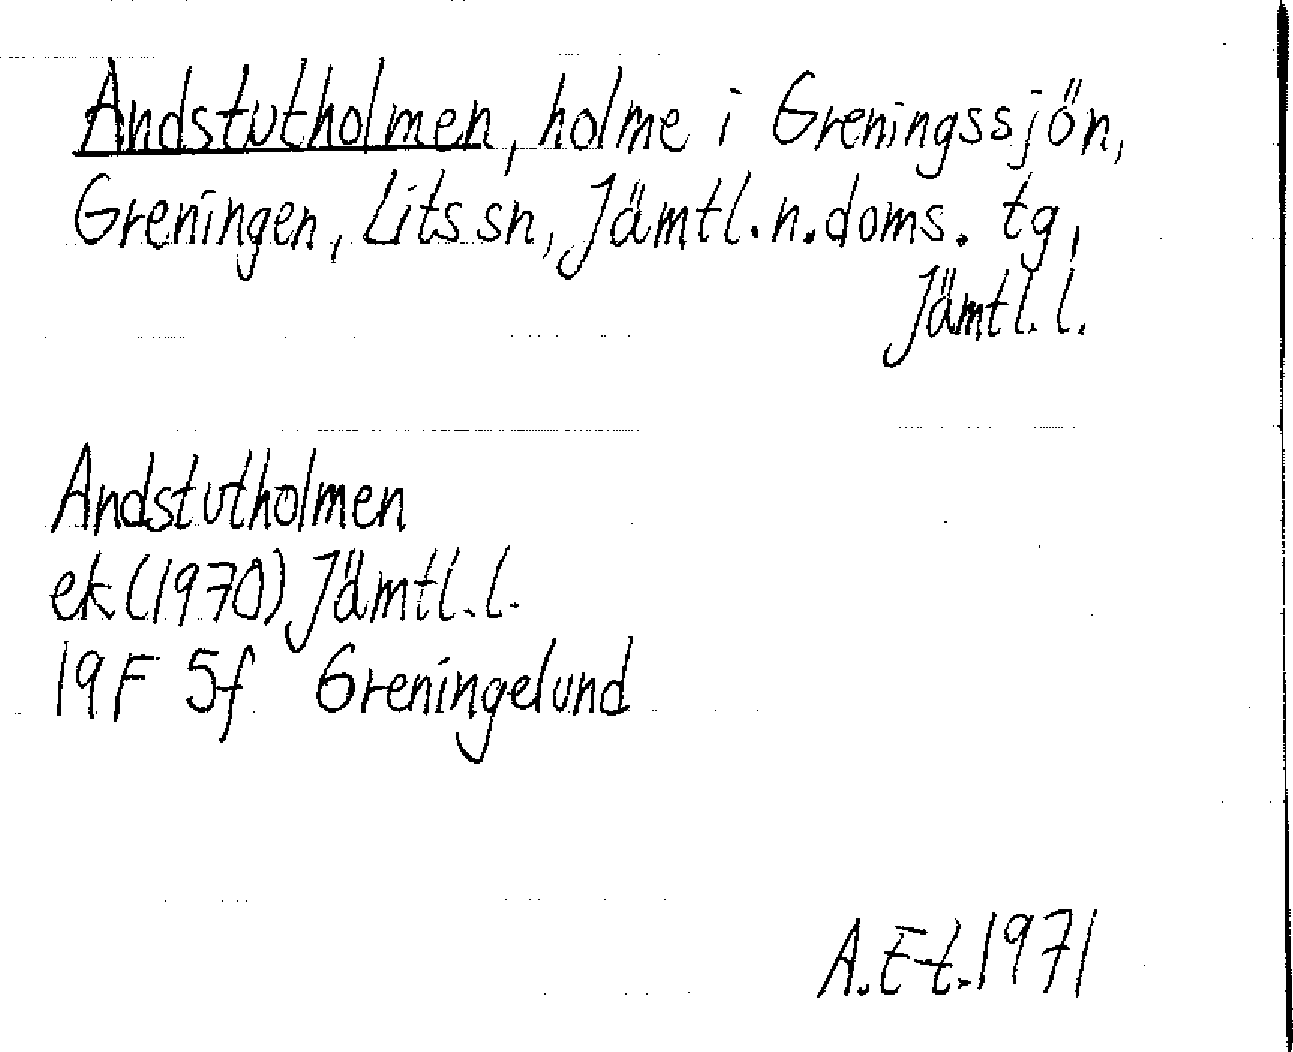 Andstutholmen, holme i Greningssjön,
Greningen, Lits sn, Jämtl. n. doms. tg,
Jämtl. l.
Andstutholmen
ek (1970) Jämtl. l.
19F 5f Greningelund
A. E-t. 1971